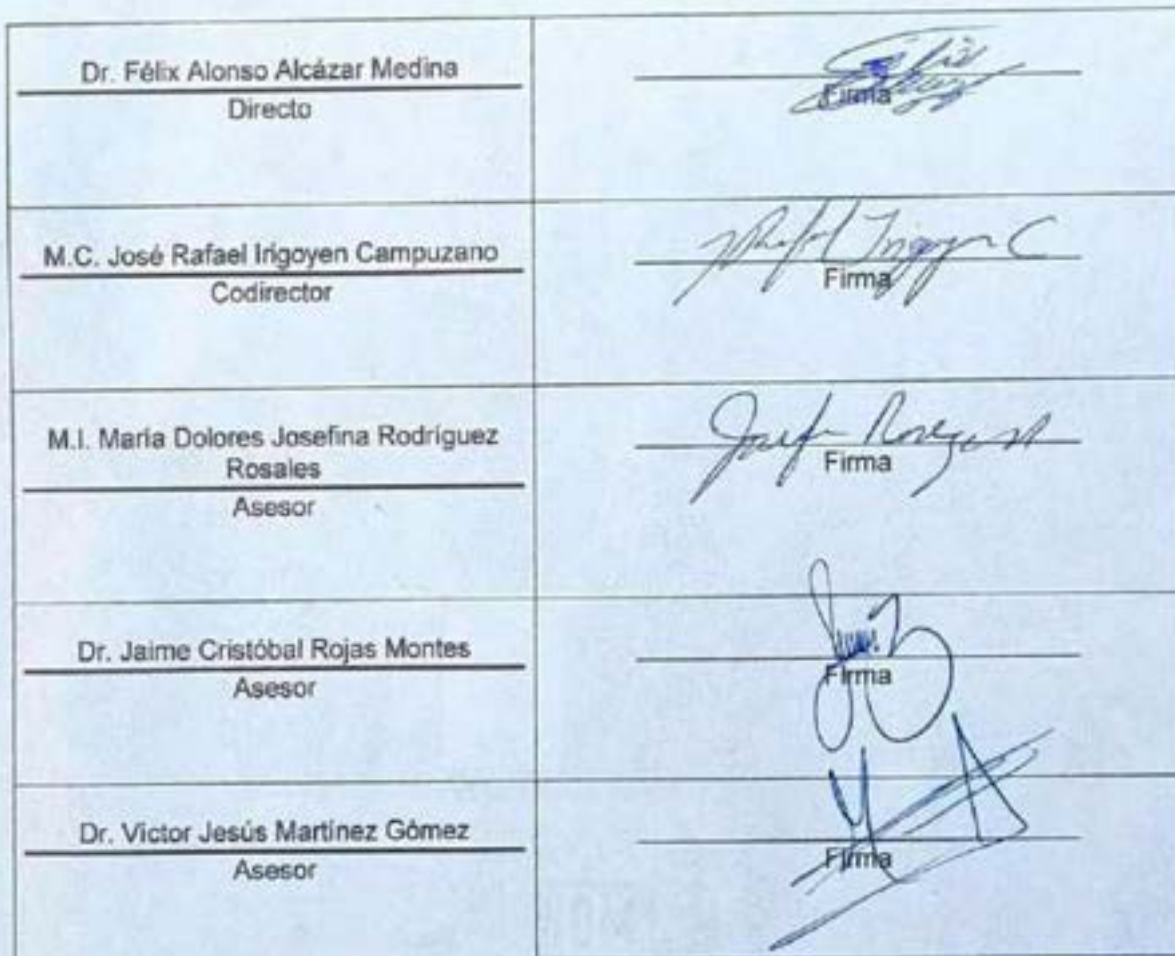 Dr. Félix Alonso Alcázar Medina
Directo
Firma
M.C. José Rafael Irigoyen Campuzano
Codirector
Rafael Irigoyen C
Firma
M.I. María Dolores Josefina Rodríguez
Rosales
Asesor
Firma
Dr. Jaime Cristóbal Rojas Montes
Asesor
Firma
Dr. Victor Jesús Martínez Gómez
Asesor
Firma